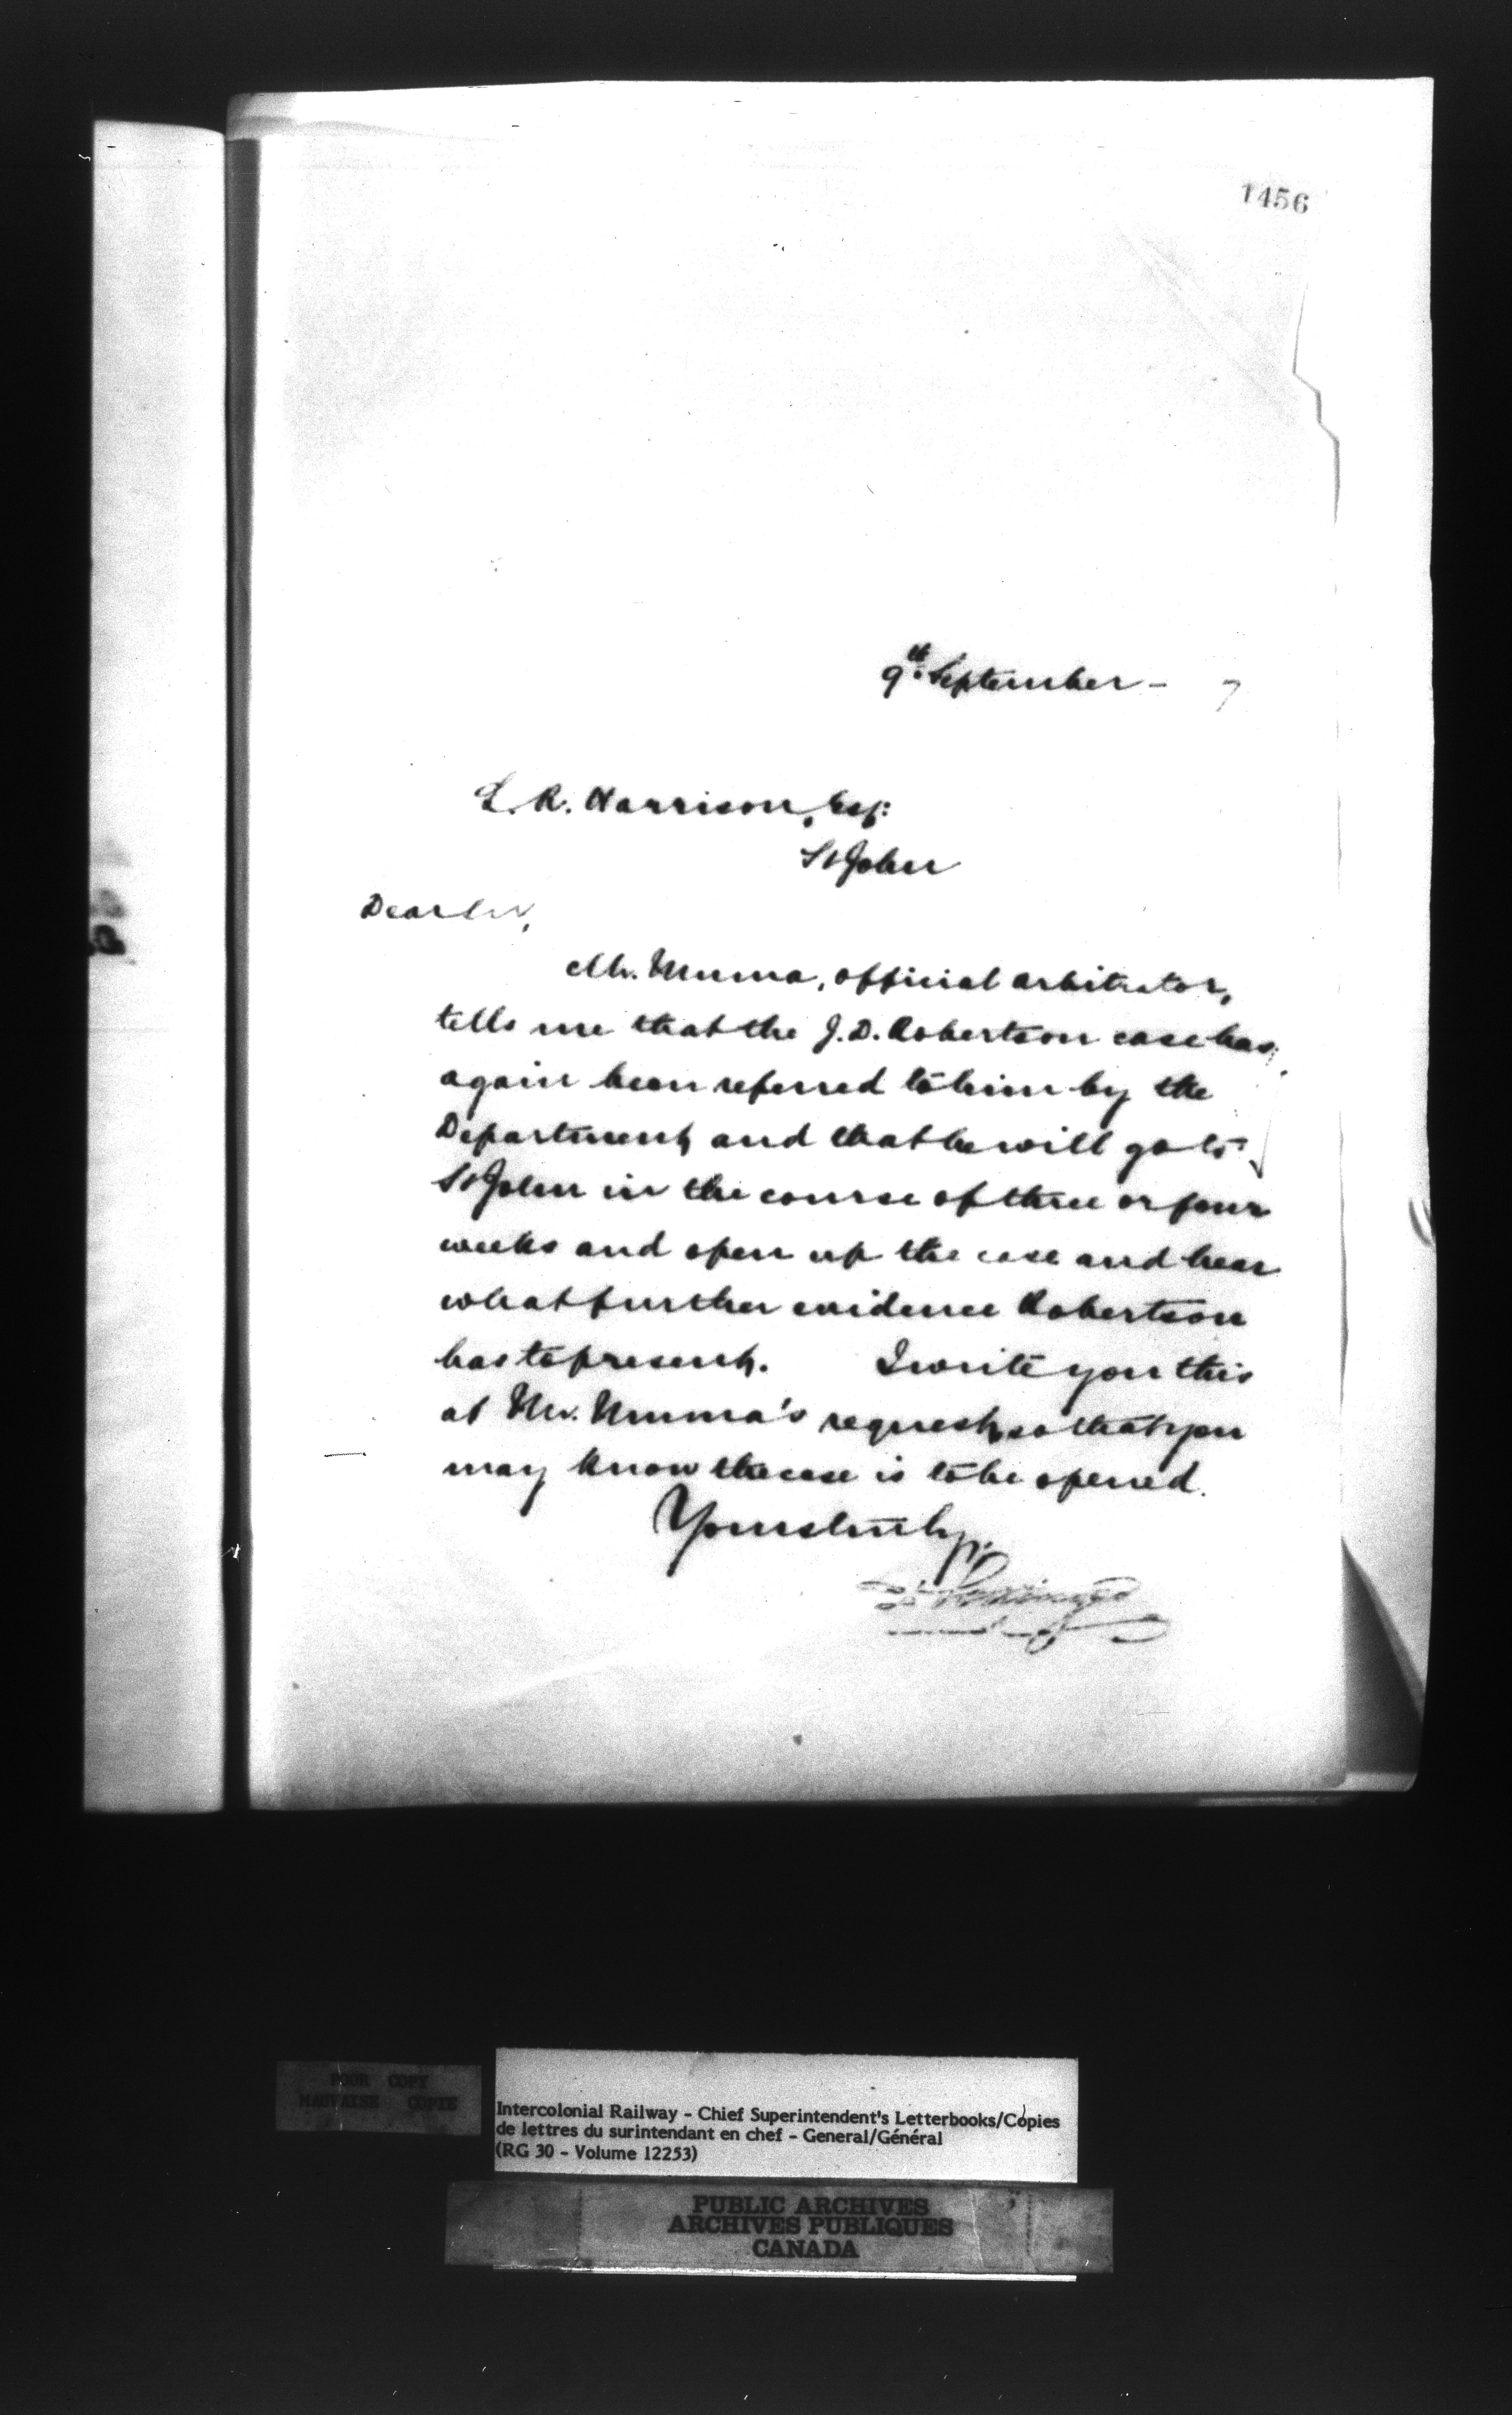 1456
9th September - 7
L. R. Harrison, Esq:
St John
Dear Sir,
Mr. Muma, official arbitrator,
tells me that the J. D. Robertson case has
again been referred to him by the
Department, and that he will go to
St John in the course of three or four
weeks and open up the case and hear
what further evidence Robertson
has to present. I write you this
at Mr. Muma's request, so that you
may know the case is to be opened.
Yours truly,
POOR COPY
MAUVAISE COPIE
Intercolonial Railway - Chief Superintendent's Letterbooks/Copies
de lettres du surintendant en chef - General/Général
(RG 30 - Volume 12253)
PUBLIC ARCHIVES
ARCHIVES PUBLIQUES
CANADA